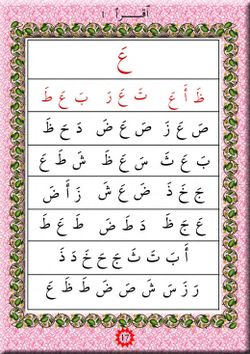 اقرأ ١
عَ
ظَ أَ عَ تَ عَ رَ بَ عَ طَ
صَ عَ زَ صَ عَ ضَ دَ حَ ظَ
بَ عَ ثَ سَ عَ ظَ شَ طَ عَ
جَ خَ ذَ ضَ عَ شَ زَ أَ ضَ
عَ جَ ظَ دَ طَ ضَ طَ عَ ظَ
أَ بَ تَ ثَ جَ حَ خَ دَ ذَ
رَ زَ سَ شَ صَ ضَ طَ ظَ عَ
١٧